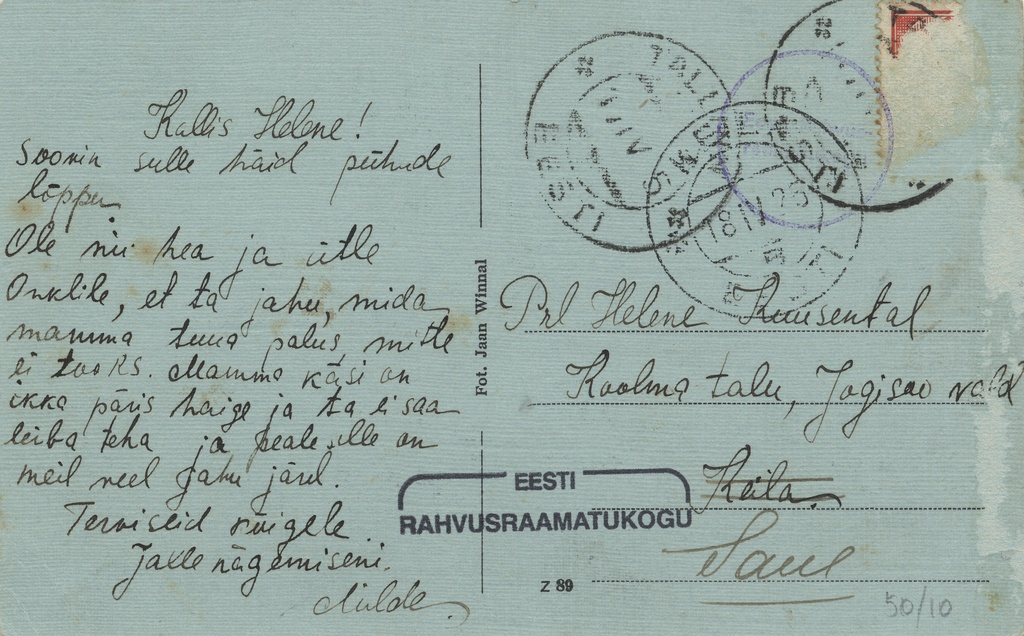 Kallis Helene!
Soovin sulle häid pühade
lõppu
Ole nii hea ja ütle
Onklile, et ta jahu, mida
mamma tuua palus, mitte
ei tooks. Mamma käsi on
ikka päris haige ja ta ei saa
leiba teha ja peale selle on
meil veel jahu järel.
Terviseid kõigele
Jälle nägemiseni.
Milde
Fot. Jaan Winnal
TALL
EESTI
18 IV 23
EESTI
Prl Helene Kuusental
Koolma talu, Jõgisoo vald
Keila
Saue
EESTI
RAHVUSRAAMATUKOGU
Z 89
50/10